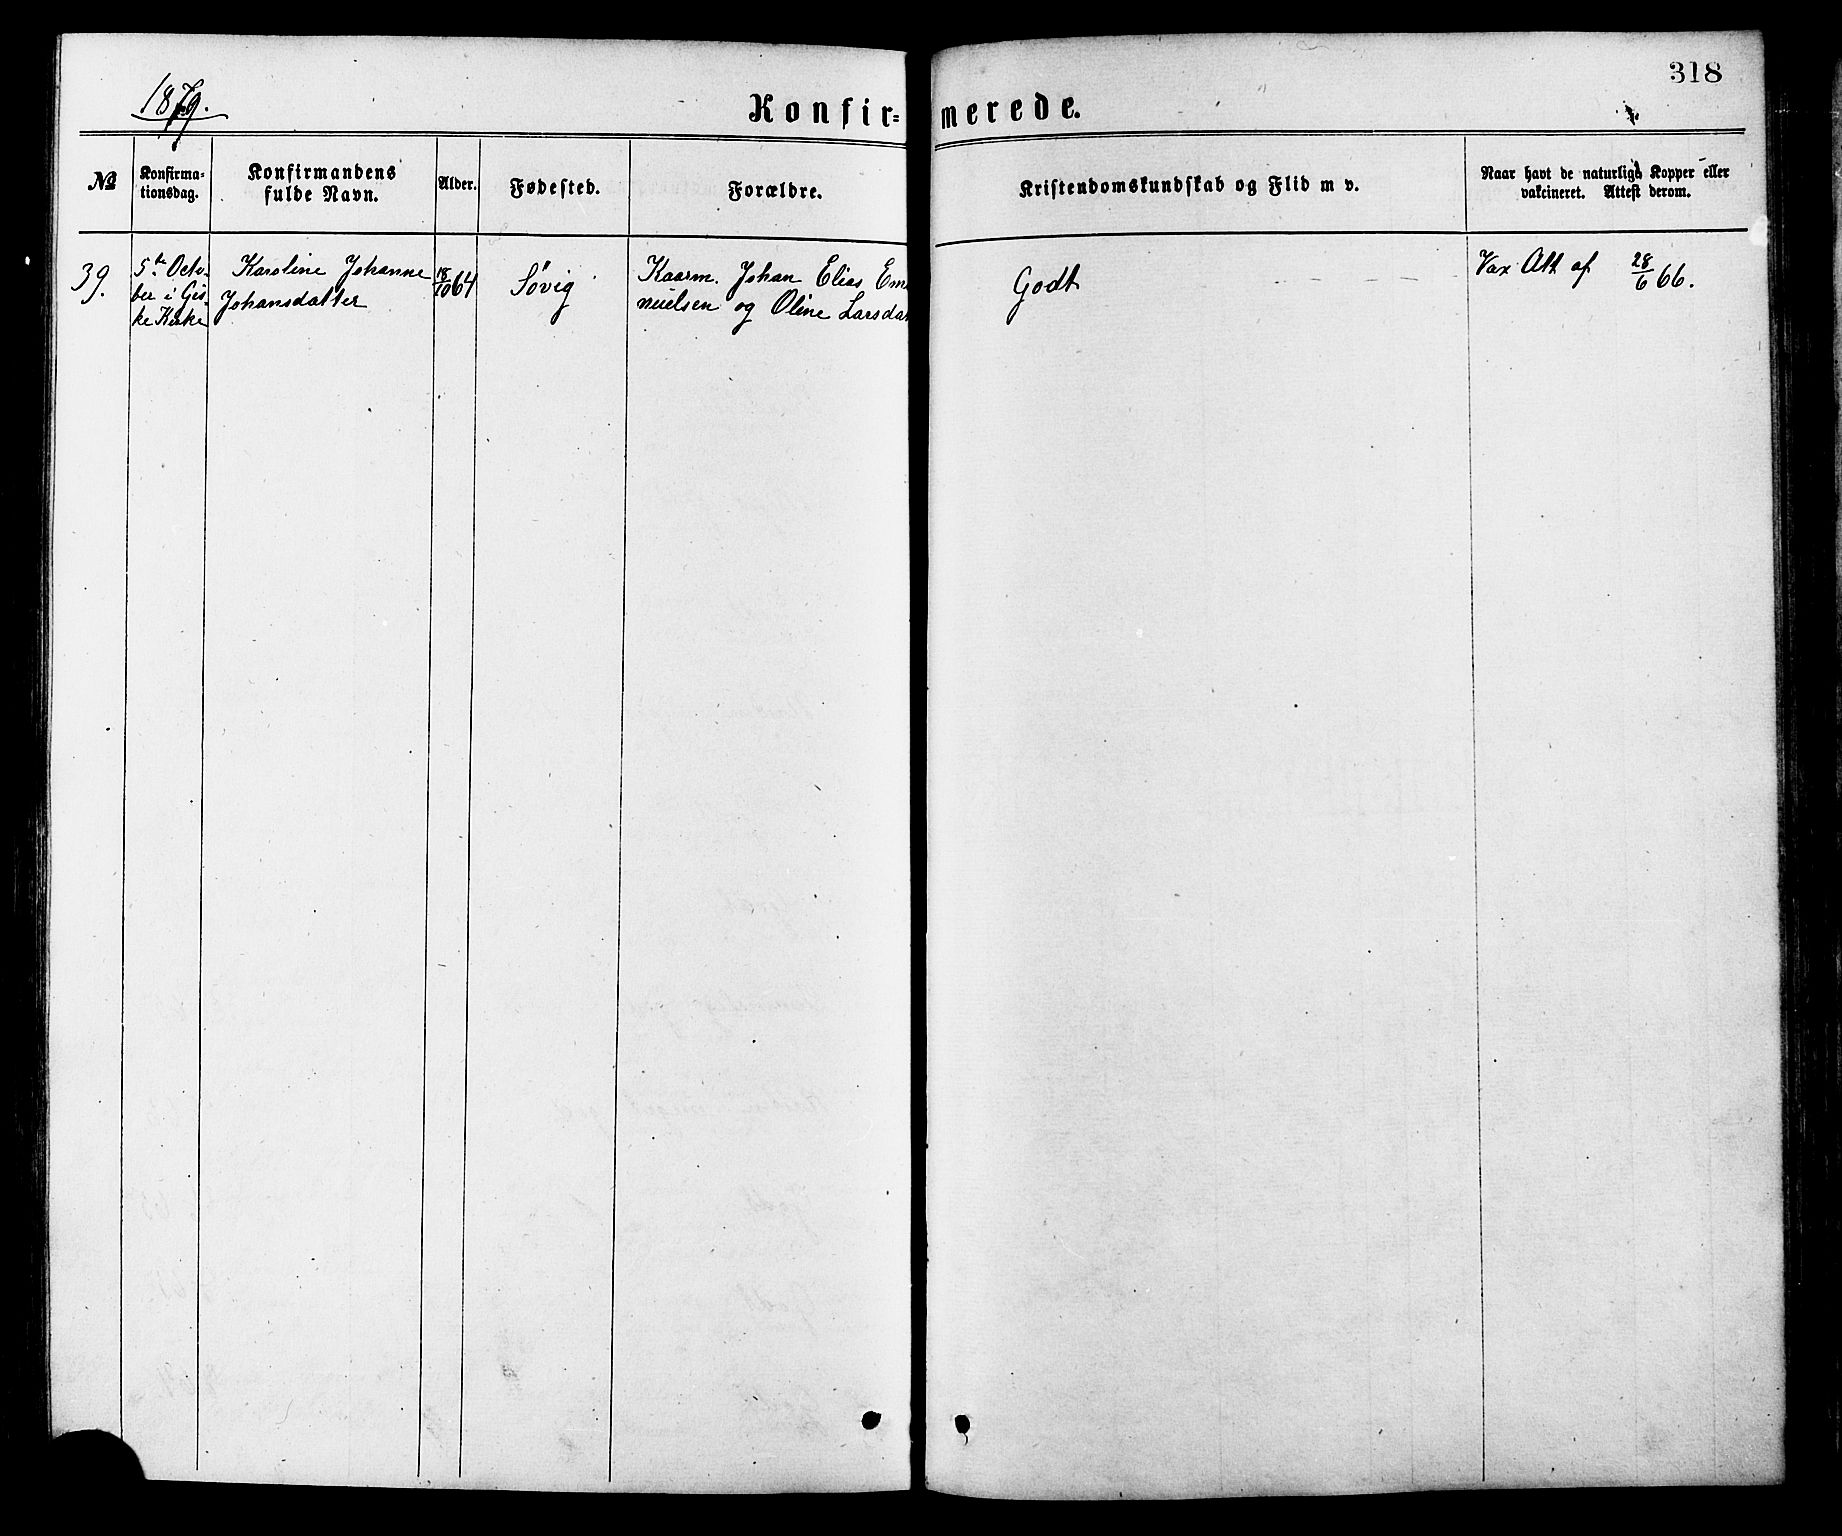 1879.
318
Konfir=
merede.
No
Konfirma-
tionsdag.
Konfirmandens
fulde Navn.
Alder.
Fødested.
Forældre.
Kristendomskundskab og Flid m v.
Naar havt de naturlige Kopper eller
vakcineret. Attest derom.
39.
5te Octo-
ber i Gis-
ke Kirke
Karoline Johanne
Johansdatter
18/10 64
Søvig
Kaarm. Johan Elias Em
nuelsen og Oline Larsdat
Godt
Vax Att af 28/6 66.